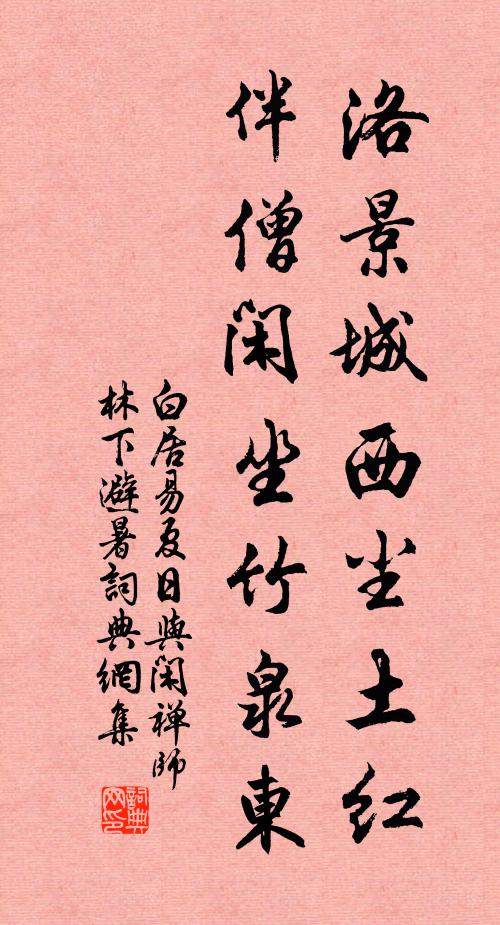 洛景城西尘土红
伴僧闲坐竹泉東
白居易夏日與闲禅師
林下避暑詞典網集
詞典网印